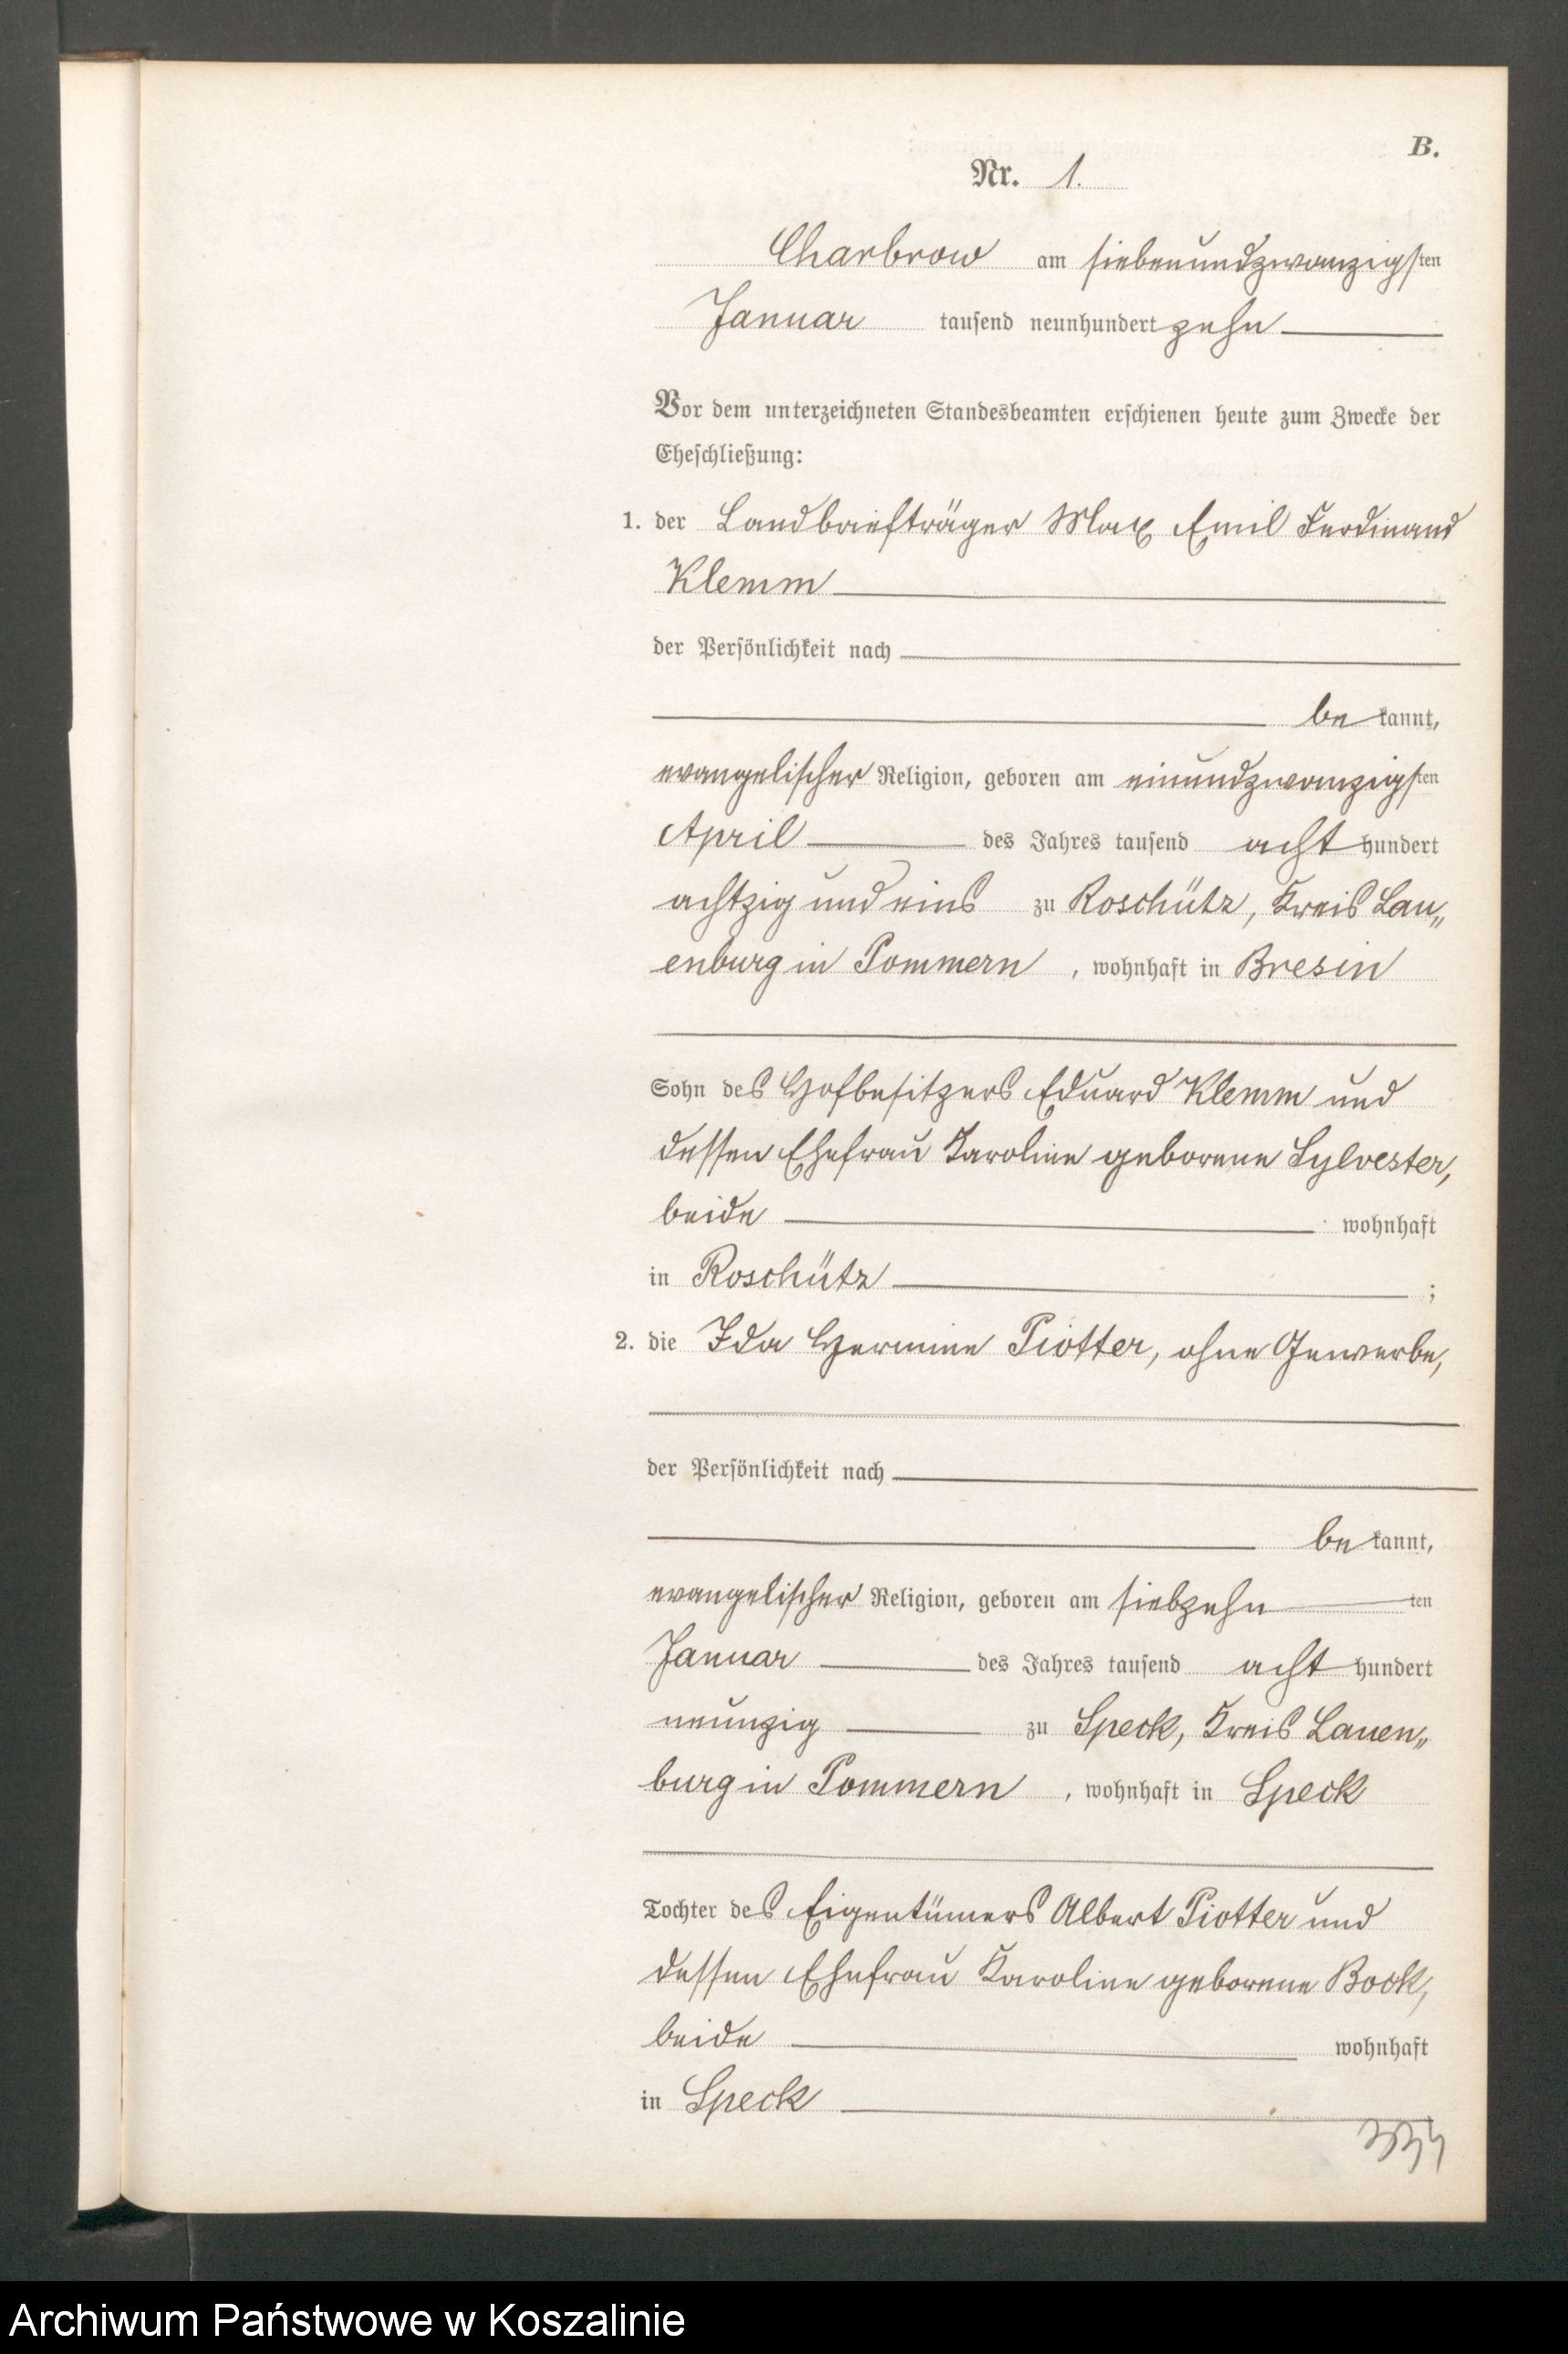 B.
Nr. 1.
Charbrow am siebenundzwanzigsten
Januar tausend neunhundert zehn
Vor dem unterzeichneten Standesbeamten erschienen heute zum Zwecke der
Eheschließung:
1. der Landbriefträger Max Emil Ferdinand
Klemm
der Persönlichkeit nach
be kannt,
evangelischer Religion, geboren am einundzwanzigsten
April des Jahres tausend acht hundert
achtzig und eins zu Roschütz, Kreis Lau„
enburg in Pommern, wohnhaft in Bresin
Sohn des Hofbesitzers Eduard Klemm und
dessen Ehefrau Karoline geborene Sylvester,
beide wohnhaft
in Roschütz ;
2. die Ida Hermine Piotter, ohne Gewerbe,
der Persönlichkeit nach
be kannt,
evangelischer Religion, geboren am siebzehnten
Januar des Jahres tausend acht hundert
neunzig zu Speck, Kreis Lauen„
burg in Pommern, wohnhaft in Speck
Tochter des Eigentümers Albert Piotter und
dessen Ehefrau Karoline geborene Bock,
beide wohnhaft
in Speck
Archiwum Państwowe w Koszalinie